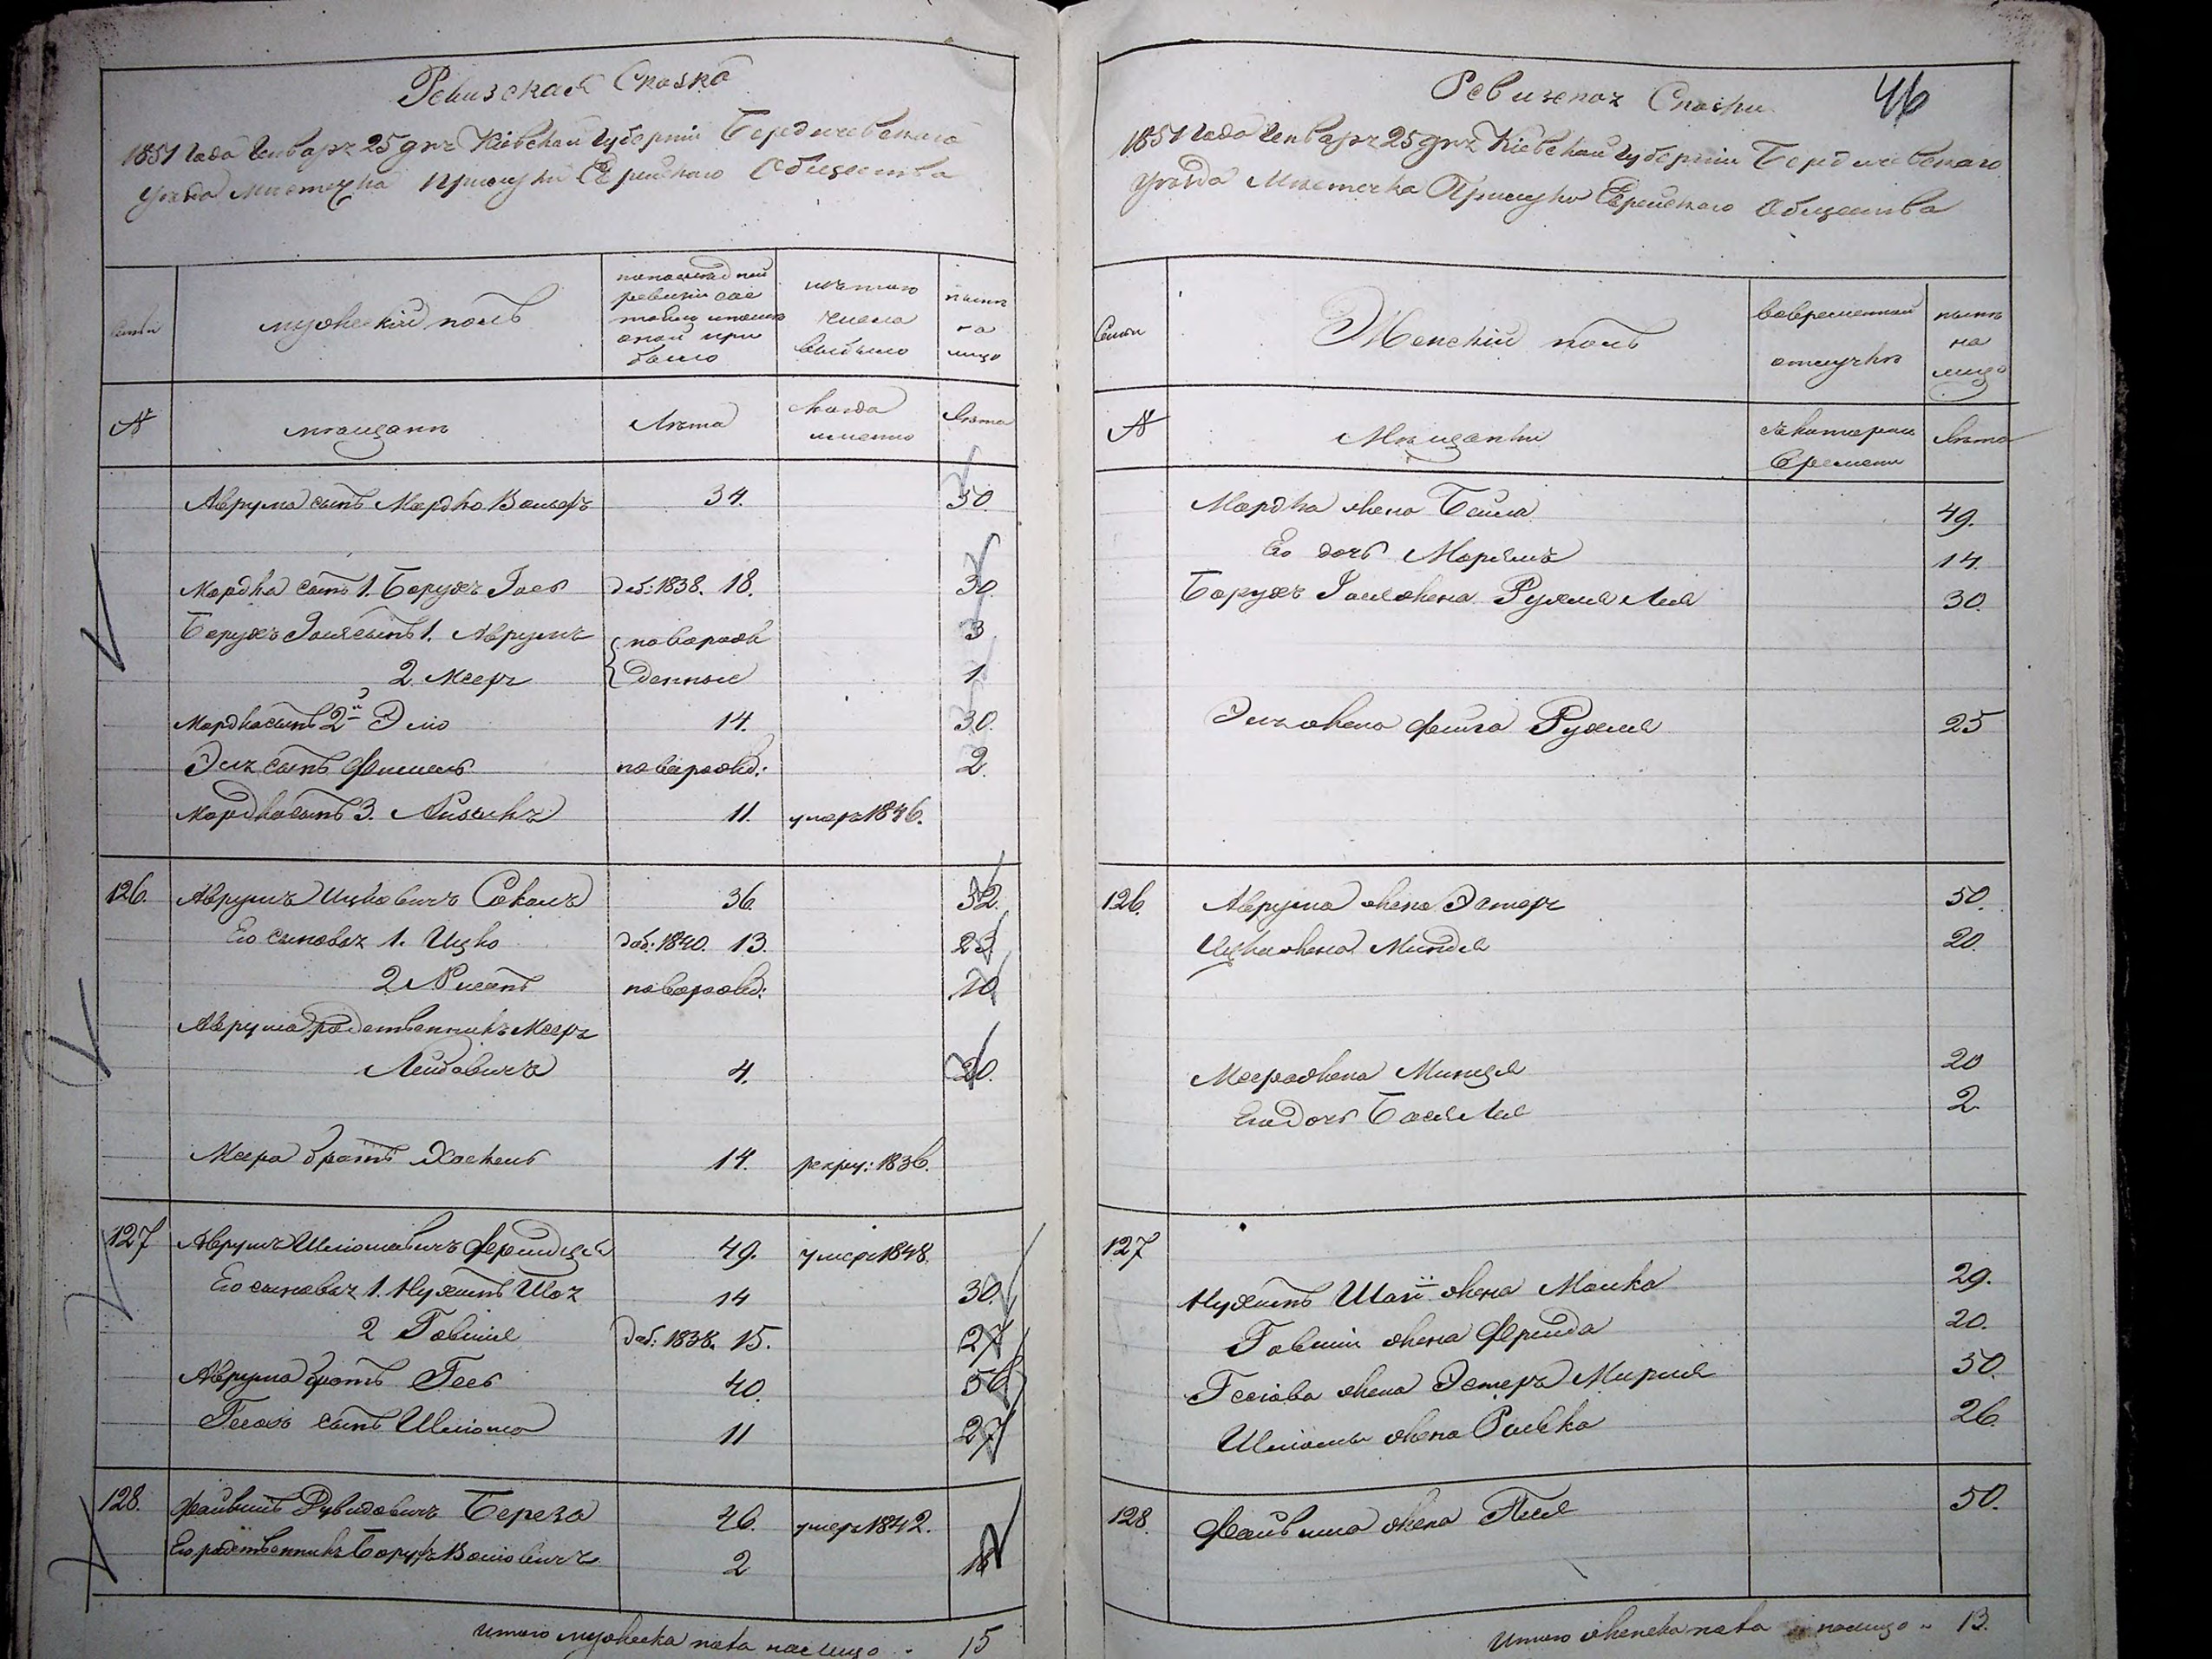 Ревизская Сказка
1851 Года Генваря 25 дня Кіевской Губерніи Бердичевскаго
уезда Местечка Прилуки Еврейского Общества
семьи
мужескій полъ
попоследней
ревизіи сос
тояло ипосле
оной при
было
изътого
числа
выбыло
ныне
на
лицо
№
мещане
Лета
когда
именно
лета
Аврума сынъ Мордко Вольфъ 34. 50
Мордка сынъ 1. Борухъ Іось доб: 1838. 18. 30.
Борухъ Іося сынъ 1. Аврумъ новорож 3
2 Меер денные 1
Мордка сынъ 2й Эль 14. 30.
Эля сынъ Фишель новорожд: 2.
Мордка сынъ 3. Айзыкъ 11. умеръ 1846.
126. Аврумъ Ицковичъ Соколъ 36. 52.
Его сыновья 1. Ицко доб: 1840. 13. 23
2 Нисонъ новорожд: 10
Аврума родственникъ Меер
Лейбовичъ 4. 20.
Меера братъ Хаскель 14. рекру: 1836.
127 Аврумъ Шліомовичъ 49. умеръ 1848.
Его сыновья 1. Нухимъ Шоя 14 30.
2 Говшія доб: 1838. 15. 27
Аврума братъ Гесь 40. 56
сынъ Шліомо 11 27
128. Файвишъ Дувидовичъ Береза 46. умеръ 1842.
Его родственникъ Борухъ Волїовичъ 2 18
Итого мужеска пола налицо 15
46
Ревизская Сказка
1851 Года Генваря 25 дня Кіевской Губерніи Бердичевскаго
уезда Местечка Прилуки Еврейского Общества
Семьи
Женскій полъ
вовременной
отлучке
ныне
на
лицо
№
Мещанки
съкоторого
времени
Лета
Мордка жена Бейла 49.
Его дочь Марьямъ 14.
Борухъ Іося жена Рухля Лея 30.
Эля жена Фейга Рухля 25
126. Аврума жена Эстеръ 50.
Ицка жена Миндля 20.
Меера жена Минця 20
Его дочь Бася Лея 2
127
Нухимъ Шоіи жена Малка 29.
Говшіи жена Фрейда 20.
жена Эстеръ Миріля 50.
Шліомы жена Ривка 26.
128. Файвиша жена Песя 50.
Итого женска пола налицо 13.